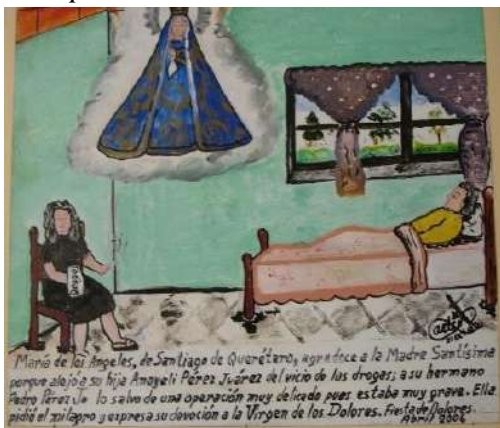 María de los Angeles, de Santiago de Querétaro, agradece a la Madre Santísima
porque alejó a su hija Anayeli Pérez Juárez del vicio de las drogas; a su hermano
Pedro Pérez Jr lo salvo de una operación muy delicada pues estaba muy grave. Ella
pidió el milagro y expresa su devoción a la Virgen de los Dolores. Fiesta de Dolores.
Abril 2004